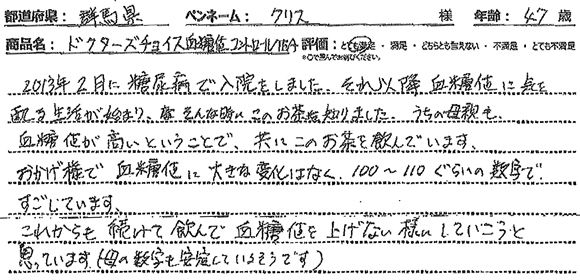 都道府県: 群馬県 ペンネーム: クリス 様 年齢: 47 歳
商品名: ドクターズチョイス血糖値コントロール 評価: とても満足 ・ 満足 ・ どちらとも言えない ・ 不満足 ・ とても不満足
※○で囲んでお選びください。
2013年2月に糖尿病で入院をしました。それ以降血糖値に気を
配る生活が始まり、そんな時にこのお茶を知りました。うちの母親も、
血糖値が高いということで、共にこのお茶を飲んでいます。
おかげ様で血糖値に大きな変化はなく、100〜110ぐらいの数字で
すごしています。
これからも続けて飲んで血糖値を上げない様にしていこうと
思っています(母の数字も安定しているそうです)